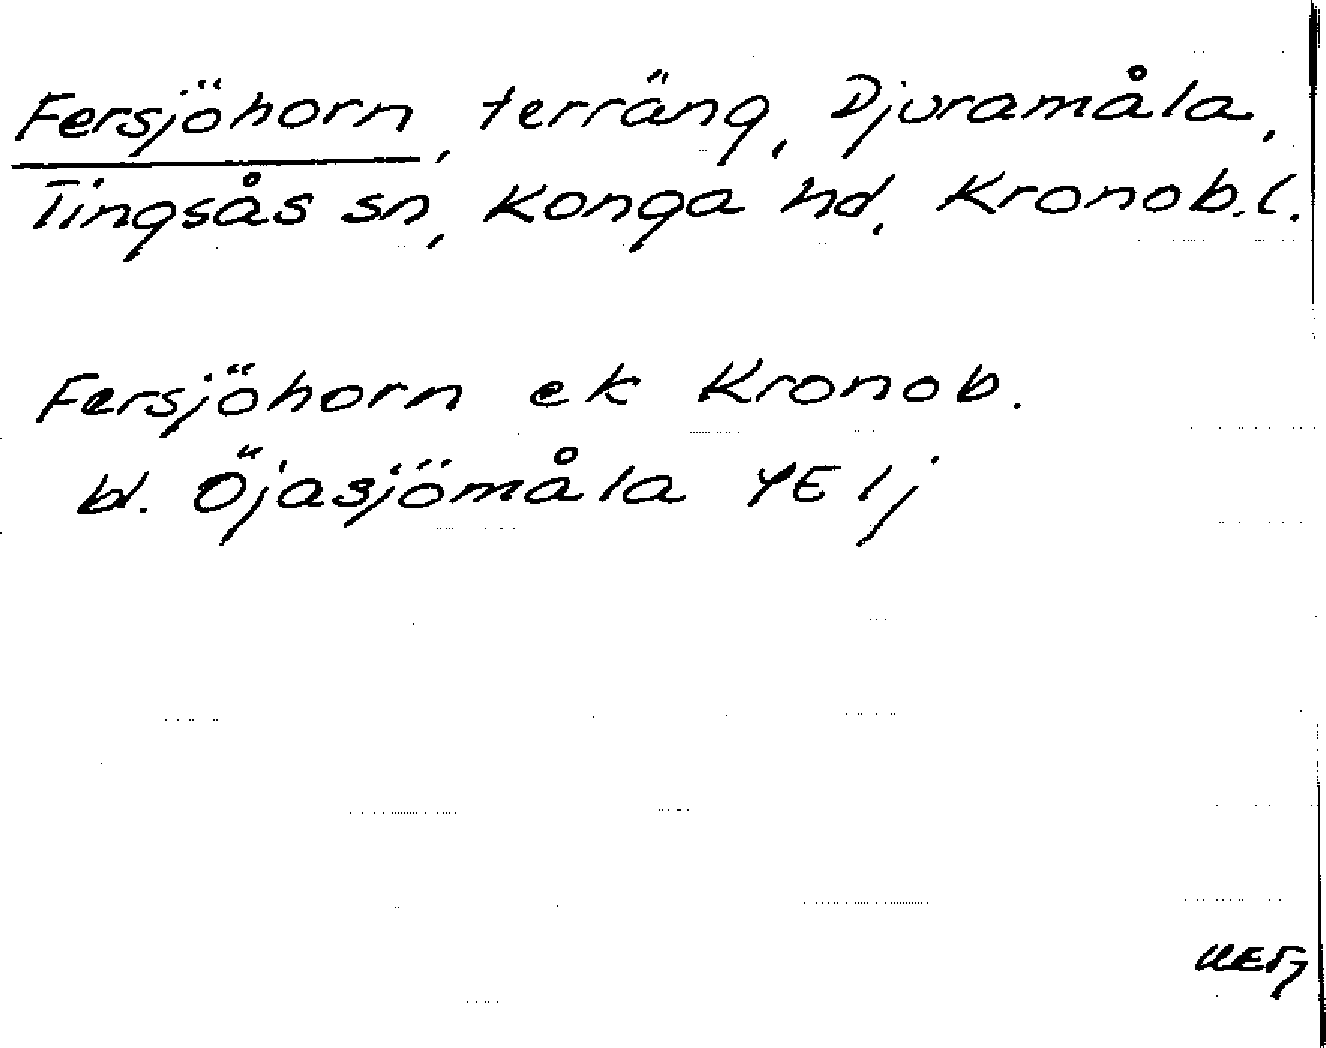 Fersjöhorn, terräng, Djuramåla,
Tingsås sn, Konga hd, Kronob.l.
Fersjöhorn ek Kronob.
bl. Öjasjömåla 4E1j